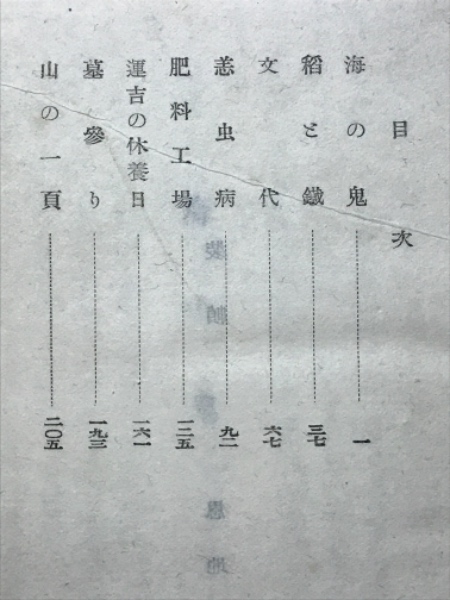 目次
海の鬼 一
稻と鐵 三七
文代 六七
恙虫病 九二
肥料工場 一三五
運吉の休養日 一六一
墓參り 一九三
山の一頁 二〇五